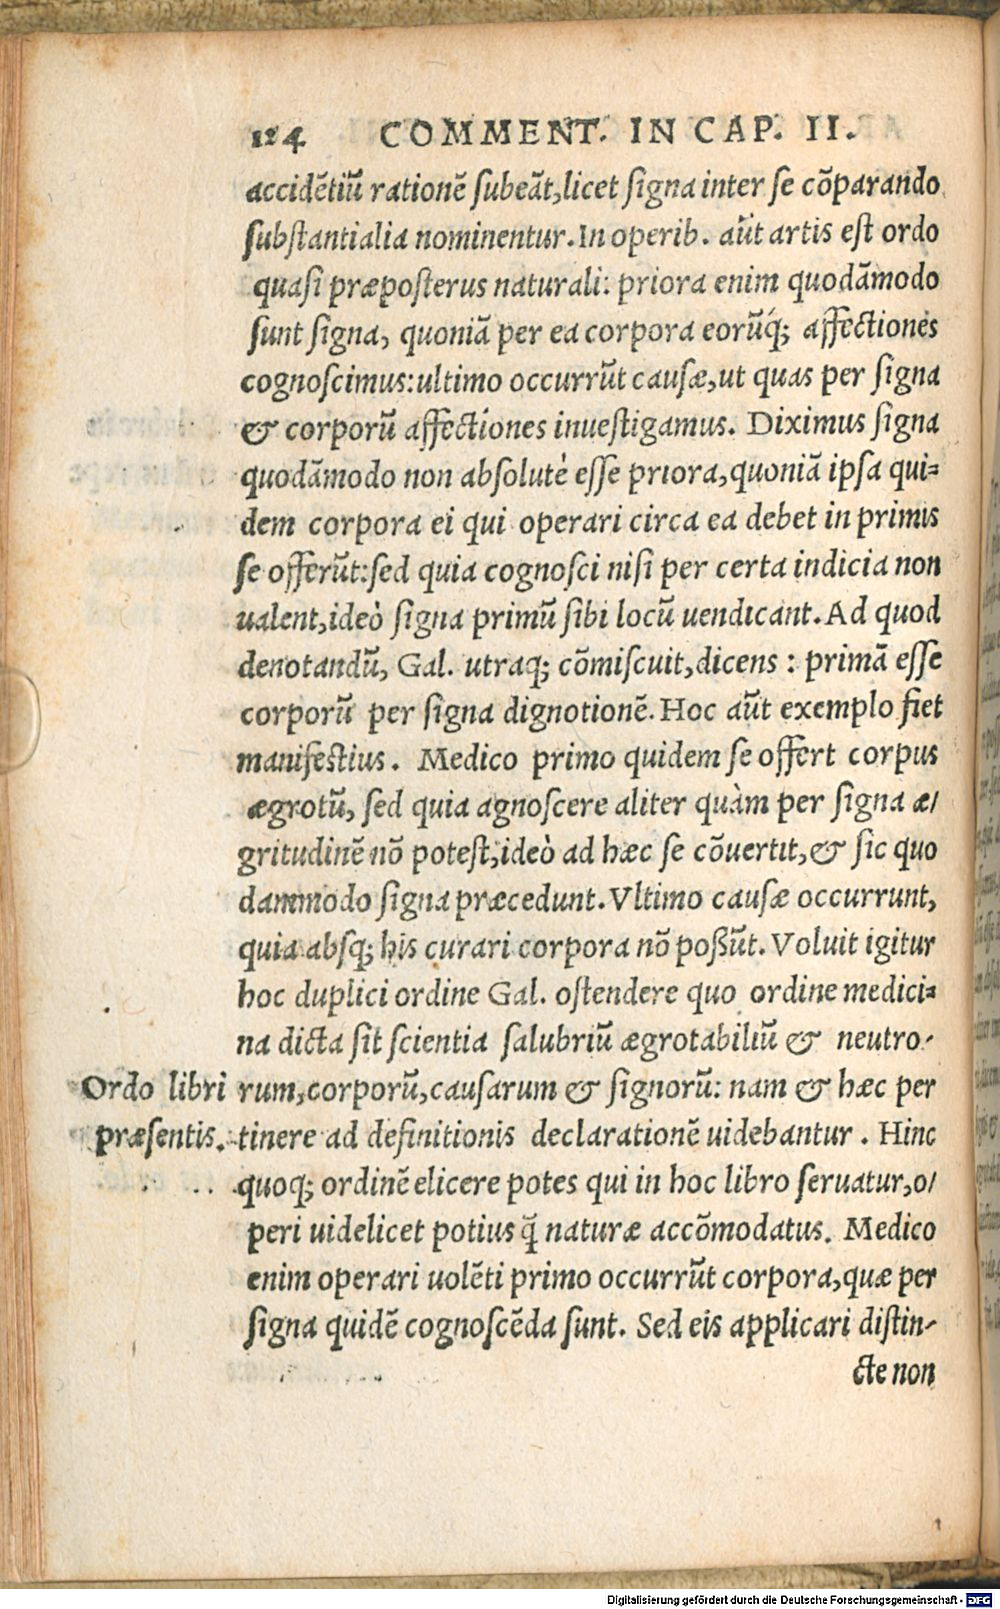 124 COMMENT. IN CAP. II.
accidẽtiũ rationẽ subeãt, licet signa inter se cõparando
substantialia nominentur. In operib. aũt artis est ordo
quasi præposterus naturali: priora enim quodãmodo
sunt signa, quoniã per ea corpora eorũq; affectiones
cognoscimus: ultimo occurrũt causæ, ut quas per signa
& corporũ affectiones inuestigamus. Diximus signa
quodãmodo non absolutè esse priora, quoniã ipsa qui=
dem corpora ei qui operari circa ea debet in primis
se offerũt: sed quia cognosci nisi per certa indicia non
ualent, ideò signa primũ sibi locũ uendicant. Ad quod
denotandũ, Gal. utraq; cõmiscuit, dicens : primã esse
corporũ per signa dignotionẽ. Hoc aũt exemplo fiet
manifestius. Medico primo quidem se offert corpus
ægrotũ, sed quia agnoscere aliter quàm per signa æ/
gritudinẽ nõ potest, ideò ad hæc se cõuertit, & sic quo
dammodo signa præcedunt. Vltimo causæ occurrunt,
quia absq; his curari corpora nõ possũt. Voluit igitur
hoc duplici ordine Gal. ostendere quo ordine medici=
na dicta sit scientia salubriũ ægrotabiliũ & neutro-
Ordo libri
præsentis.
rum, corporũ, causarum & signorũ: nam & hæc per
tinere ad definitionis declarationẽ uidebantur. Hinc
quoq; ordinẽ elicere potes qui in hoc libro seruatur, o/
peri uidelicet potius q̃ naturæ accõmodatus. Medico
enim operari uolẽti primo occurrũt corpora, quæ per
signa quidẽ cognoscẽda sunt. Sed eis applicari distin-
cte non
Digitalisierung gefördert durch die Deutsche Forschungsgemeinschaft - DFG